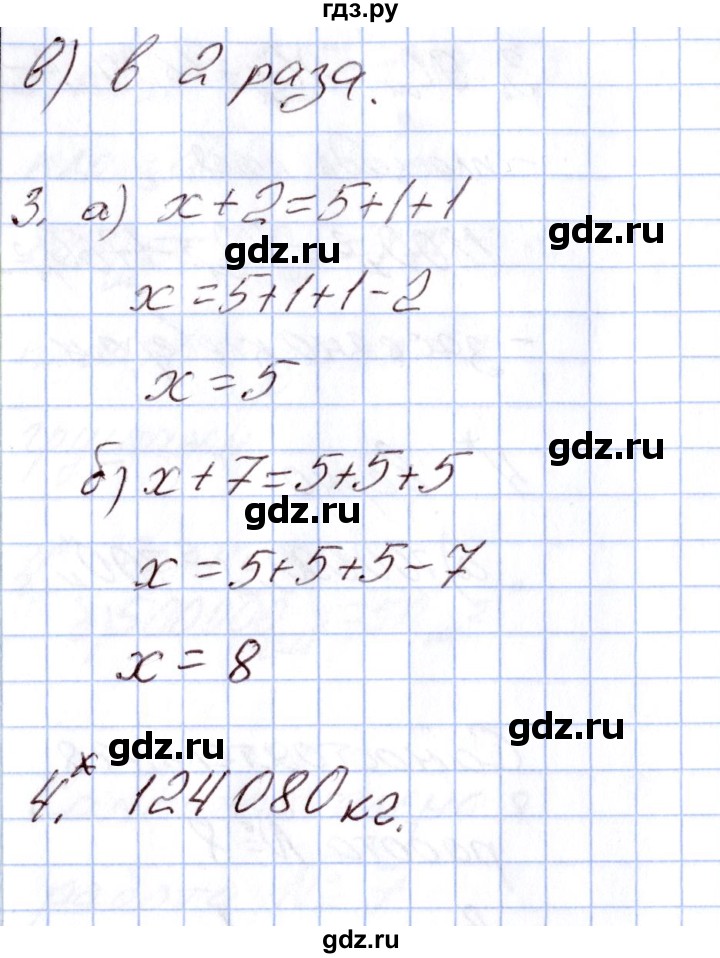 гдз.ру
в) в 2 раза.
3. а) x+2=5+1+1
gdz.ru
gdz.ru
x=5+1+1-2
x=5
gdz.ru
б) x+7=5+5+5
gdz.ru
x=5+5+5-7
x=8
gdz.ru
gdz.ru
4.* 124080 кг.
gdz.ru